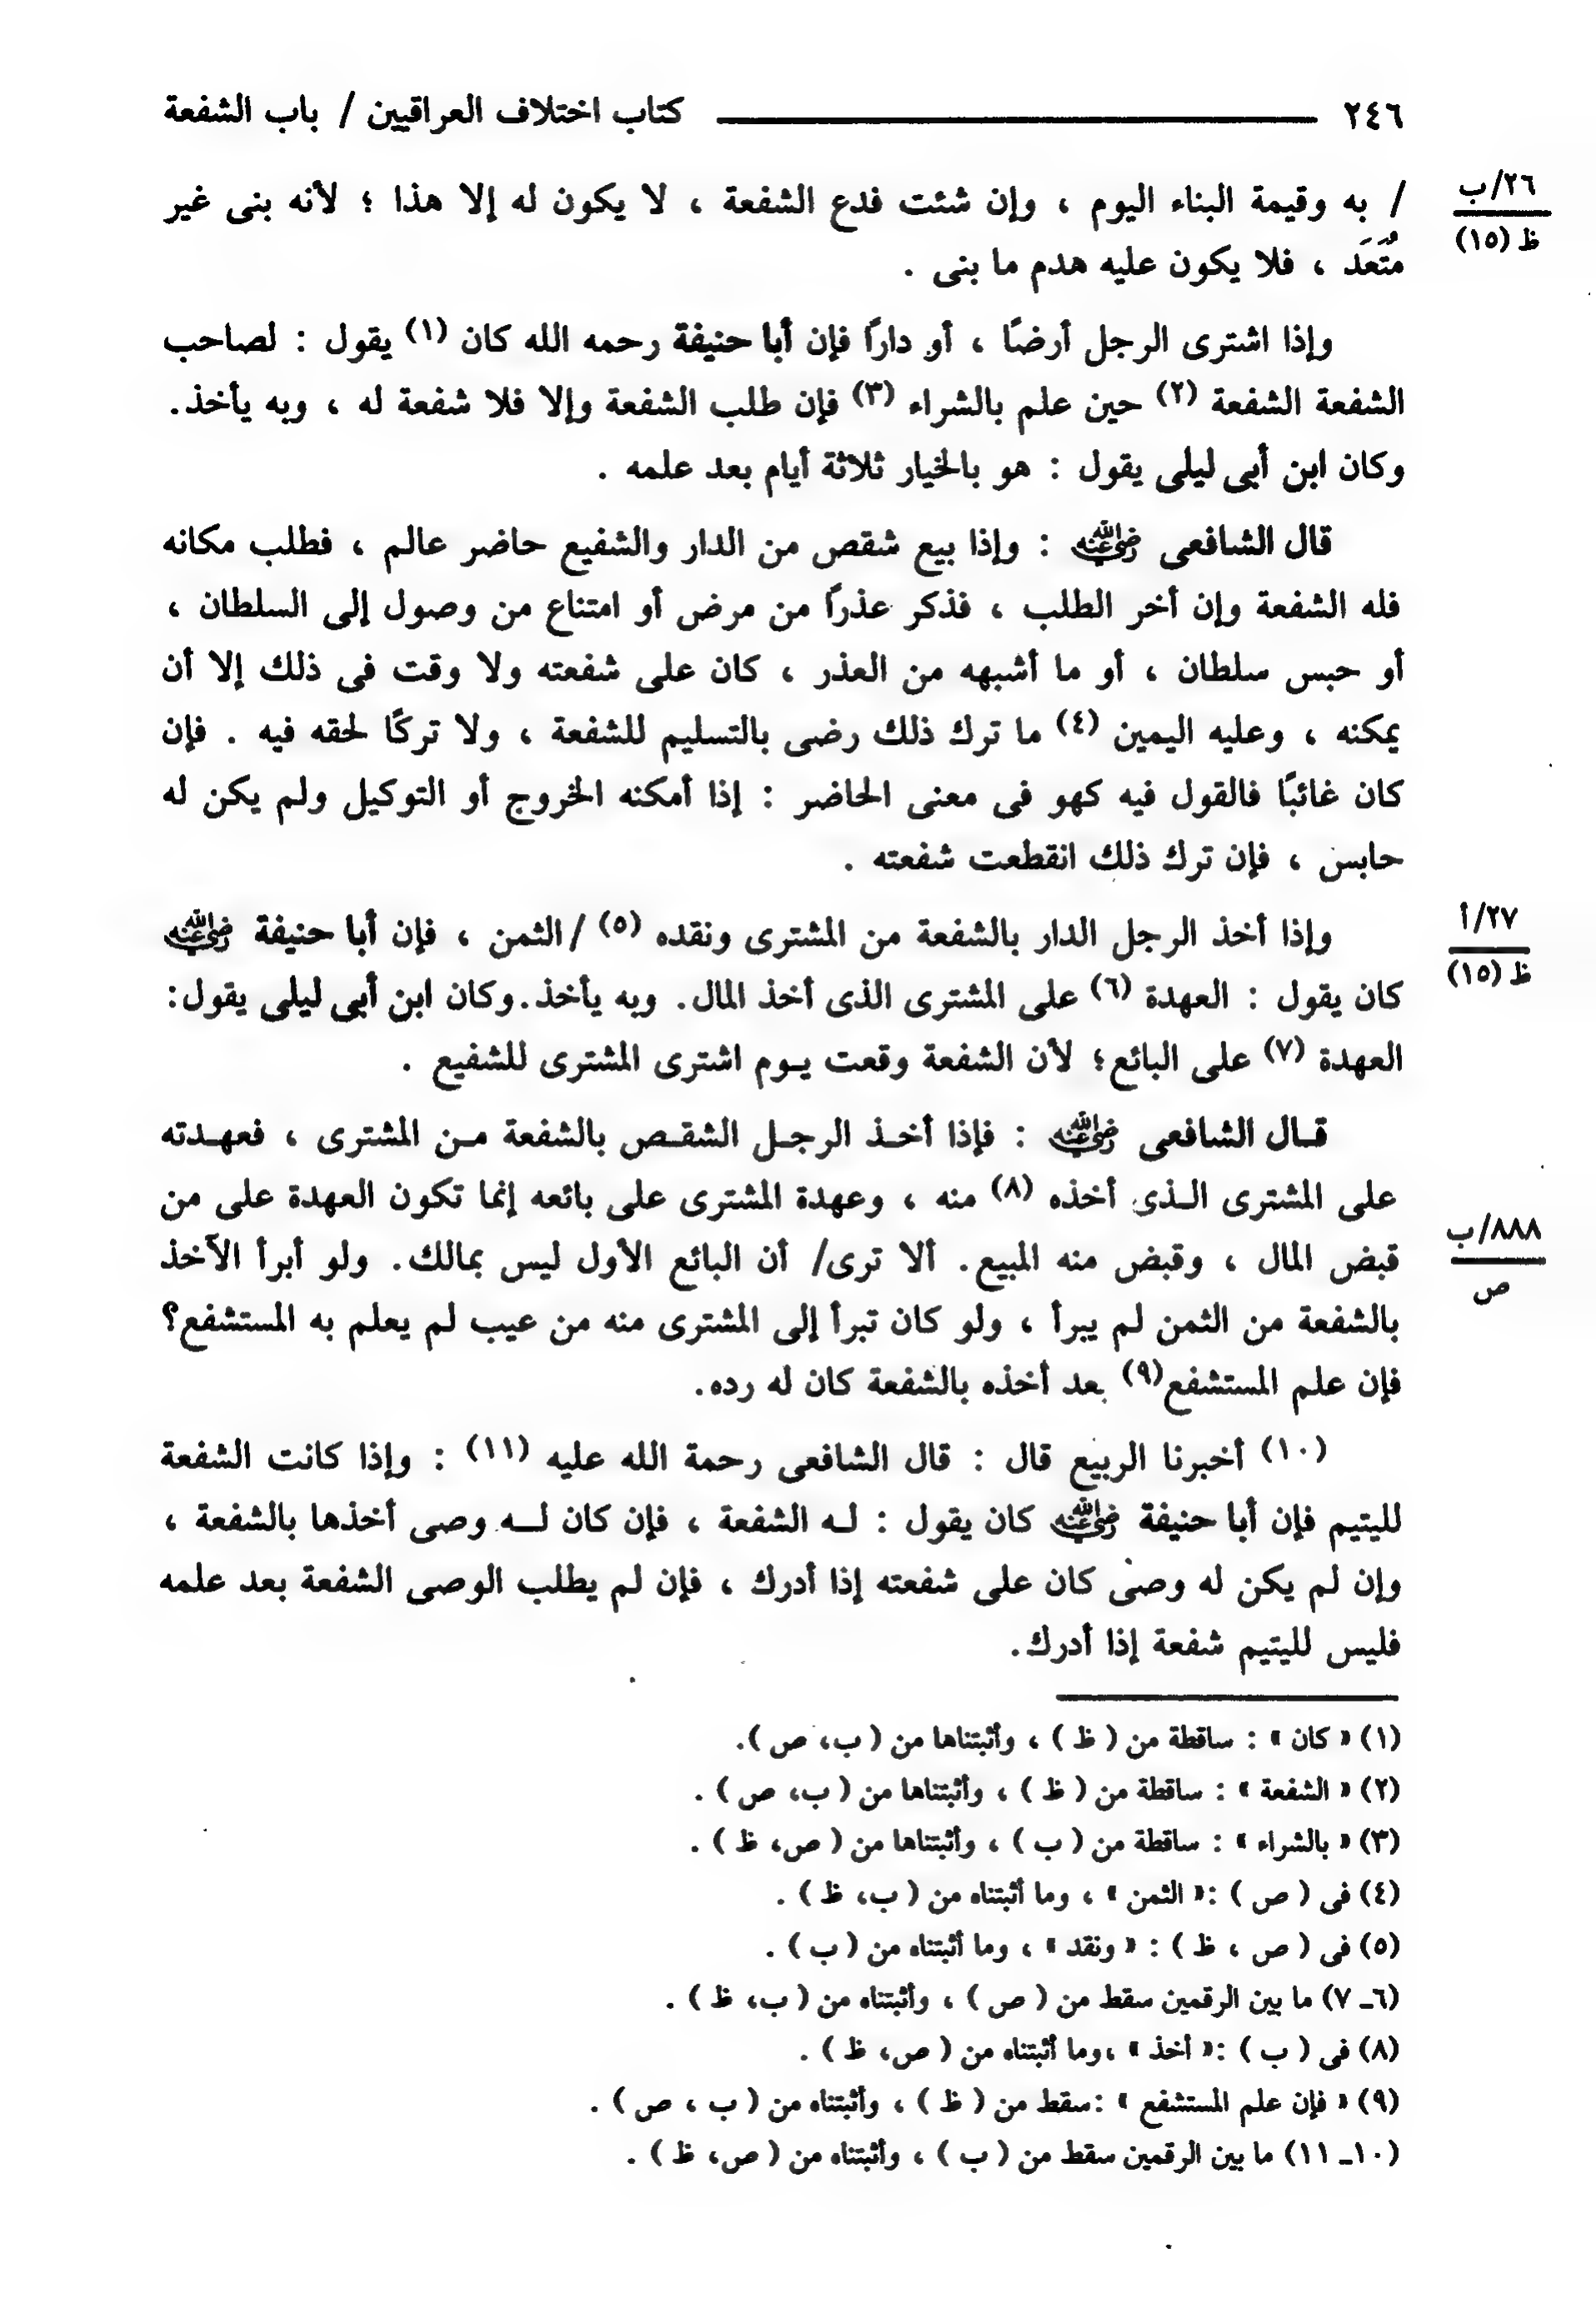 ٢٤٦ كتاب اختلاف العراقيين / باب الشفعة
٢٦/ب
ظ (١٥)
/ به وقيمة البناء اليوم ، وإن شئت فدع الشفعة ، لا يكون له إلا هذا ؛ لأنه بنى غير
مُتَعَد ، فلا يكون عليه هدم ما بنى .
وإذا اشترى الرجل أرضًا ، أو دارًا فإن أبا حنيفة رحمه الله كان (١) يقول : لصاحب
الشفعة الشفعة (٢) حين علم بالشراء (٣) فإن طلب الشفعة وإلا فلا شفعة له ، وبه يأخذ.
وكان ابن أبى ليلى يقول : هو بالخيار ثلاثة أيام بعد علمه .
قال الشافعى رضي الله عنه : وإذا بيع شقص من الدار والشفيع حاضر عالم ، فطلب مكانه
فله الشفعة وإن أخر الطلب ، فذكر عذرًا من مرض أو امتناع من وصول إلى السلطان ،
أو حبس سلطان ، أو ما أشبهه من العذر ، كان على شفعته ولا وقت فى ذلك إلا أن
يمكنه ، وعليه اليمين (٤) ما ترك ذلك رضى بالتسليم للشفعة ، ولا تركًا لحقه فيه . فإن
كان غائبًا فالقول فيه كهو فى معنى الحاضر : إذا أمكنه الخروج أو التوكيل ولم يكن له
حابس ، فإن ترك ذلك انقطعت شفعته .
٢٧/أ
ظ (١٥)
وإذا أخذ الرجل الدار بالشفعة من المشترى ونقده (٥) /الثمن ، فإن أبا حنيفة رضي الله عنه
كان يقول : العهدة (٦) على المشترى الذى أخذ المال. وبه يأخذ. وكان ابن أبى ليلى يقول:
العهدة (٧) على البائع؛ لأن الشفعة وقعت يـوم اشترى المشترى للشفيع .
قـال الشافعى رضي الله عنه : فإذا أخـذ الرجـل الشقـص بالشفعة مـن المشترى ، فعهـدته
على المشترى الـذى أخذه (٨) منه ، وعهدة المشترى على بائعه إنما تكون العهدة على من
٨٨٨/ب
ص
قبض المال ، وقبض منه المبيع. ألا ترى/ أن البائع الأول ليس بمالك. ولو أبرأ الآخذ
بالشفعة من الثمن لم يبرأ ، ولو كان تبرأ إلى المشترى منه من عيب لم يعلم به المستشفع؟
فإن علم المستشفع(٩) بعد أخذه بالشفعة كان له رده.
(١٠) أخبرنا الربيع قال : قال الشافعى رحمة الله عليه (١١) : وإذا كانت الشفعة
لليتيم فإن أبا حنيفة رضي الله عنه كان يقول : لـه الشفعة ، فإن كان لـــه وصى أخذها بالشفعة ،
وإن لم يكن له وصى كان على شفعته إذا أدرك ، فإن لم يطلب الوصى الشفعة بعد علمه
فليس لليتيم شفعة إذا أدرك.
(١) « كان » : ساقطة من ( ظ ) ، وأثبتناها من ( ب، ص ).
(٢) « الشفعة » : ساقطة من ( ظ ) ، وأثبتناها من ( ب، ص ) .
(٣) « بالشراء » : ساقطة من ( ب ) ، وأثبتناها من ( ص، ظ ) .
(٤) فى ( ص ) :« الثمن » ، وما أثبتناه من ( ب، ظ ) .
(٥) فى ( ص ، ظ ) : « ونقد » ، وما أثبتناه من ( ب ) .
(٦ـ ٧) ما بين الرقمين سقط من ( ص ) ، وأثبتناه من ( ب، ظ ) .
(٨) فى ( ب ) :« أخذ » ،وما أثبتناه من ( ص، ظ ) .
(٩) « فإن علم المستشفع » :سقط من ( ظ ) ، وأثبتناه من ( ب ، ص ) .
(١٠ـ ١١) ما بين الرقمين سقط من ( ب ) ، وأثبتناه من ( ص، ظ ) .